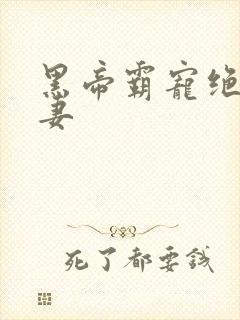 黑帝霸宠绝
妻
死了都要钱